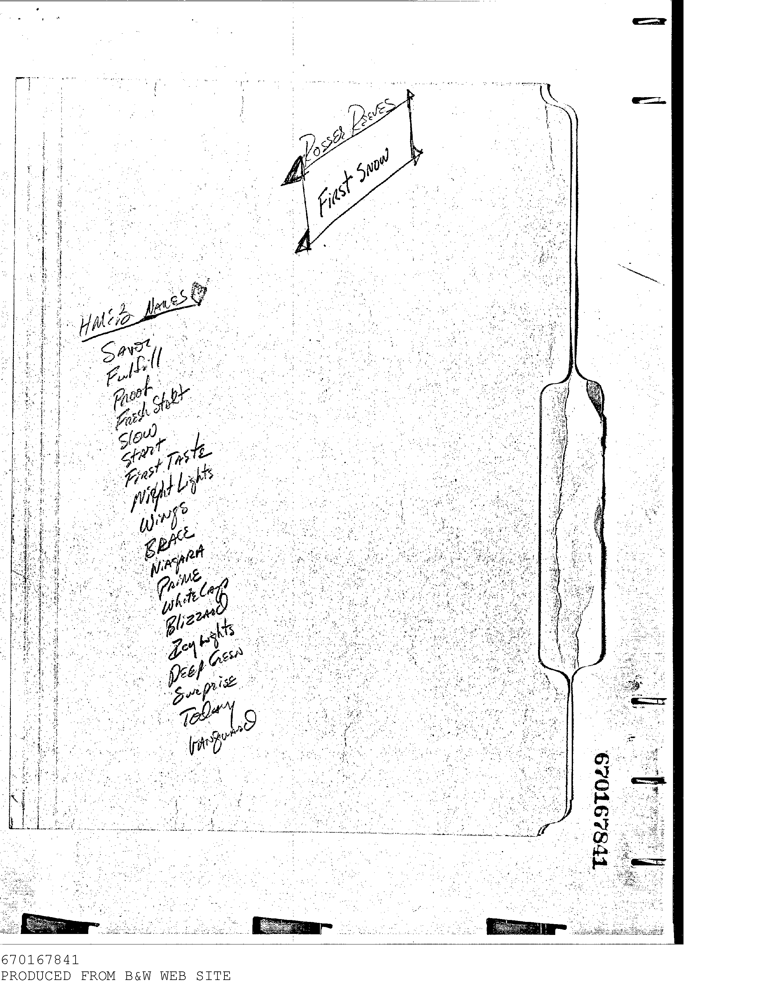 ROSSER REEVES
FIRST SNOW
NAMES
Savor
Fulfill
Proof
Fresh Start
Slow
Start
First Taste
Night Lights
Wings
BRACE
NIAGARA
PRIME
White Cap
Blizzard
Icy Lights
DEEP GREEN
Surprise
Today
Vanguard
670167841
670167841
PRODUCED FROM B&W WEB SITE